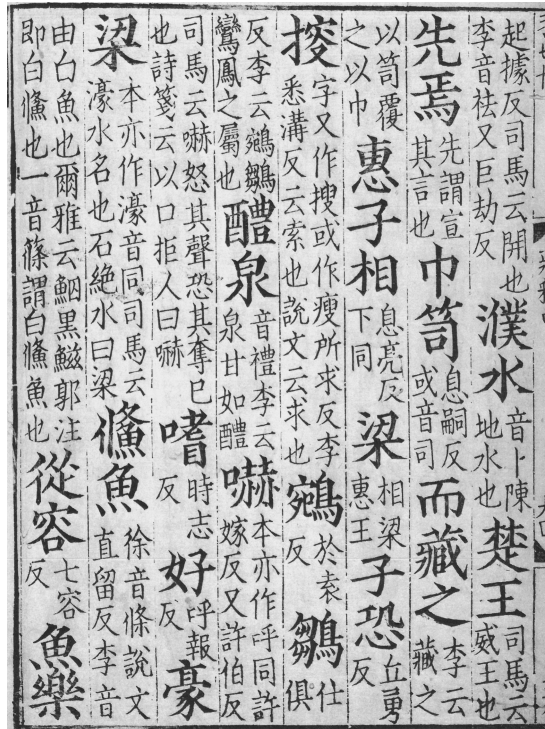 起據反司馬云開也李音袪又巨劫反濮水音卜陳地水也楚王司馬云威王也
先焉先謂宣其言也巾笥息嗣反或音司而藏之李云藏之
以笥覆之以巾惠子相息亮反下同梁相梁惠王子恐丘勇反
搜字又作搜或作瘦所求反李悉溝反云索也說文云求也鵷於袁反鶵仕俱
反李云鵷鶵鸞鳳之屬也醴泉音禮李云泉甘如醴嚇本亦作呼同許嫁反又許伯反
司馬云嚇怒其聲恐其奪己也詩箋云以口拒人曰嚇嗜時志反好呼報反豪
梁本亦作濠音同司馬云濠水名也石絕水曰梁鯈魚徐音條說文直留反李音
由白魚也爾雅云鮂黑鰦郭注即白鯈也一音篠謂白鯈魚也從容七容反魚樂